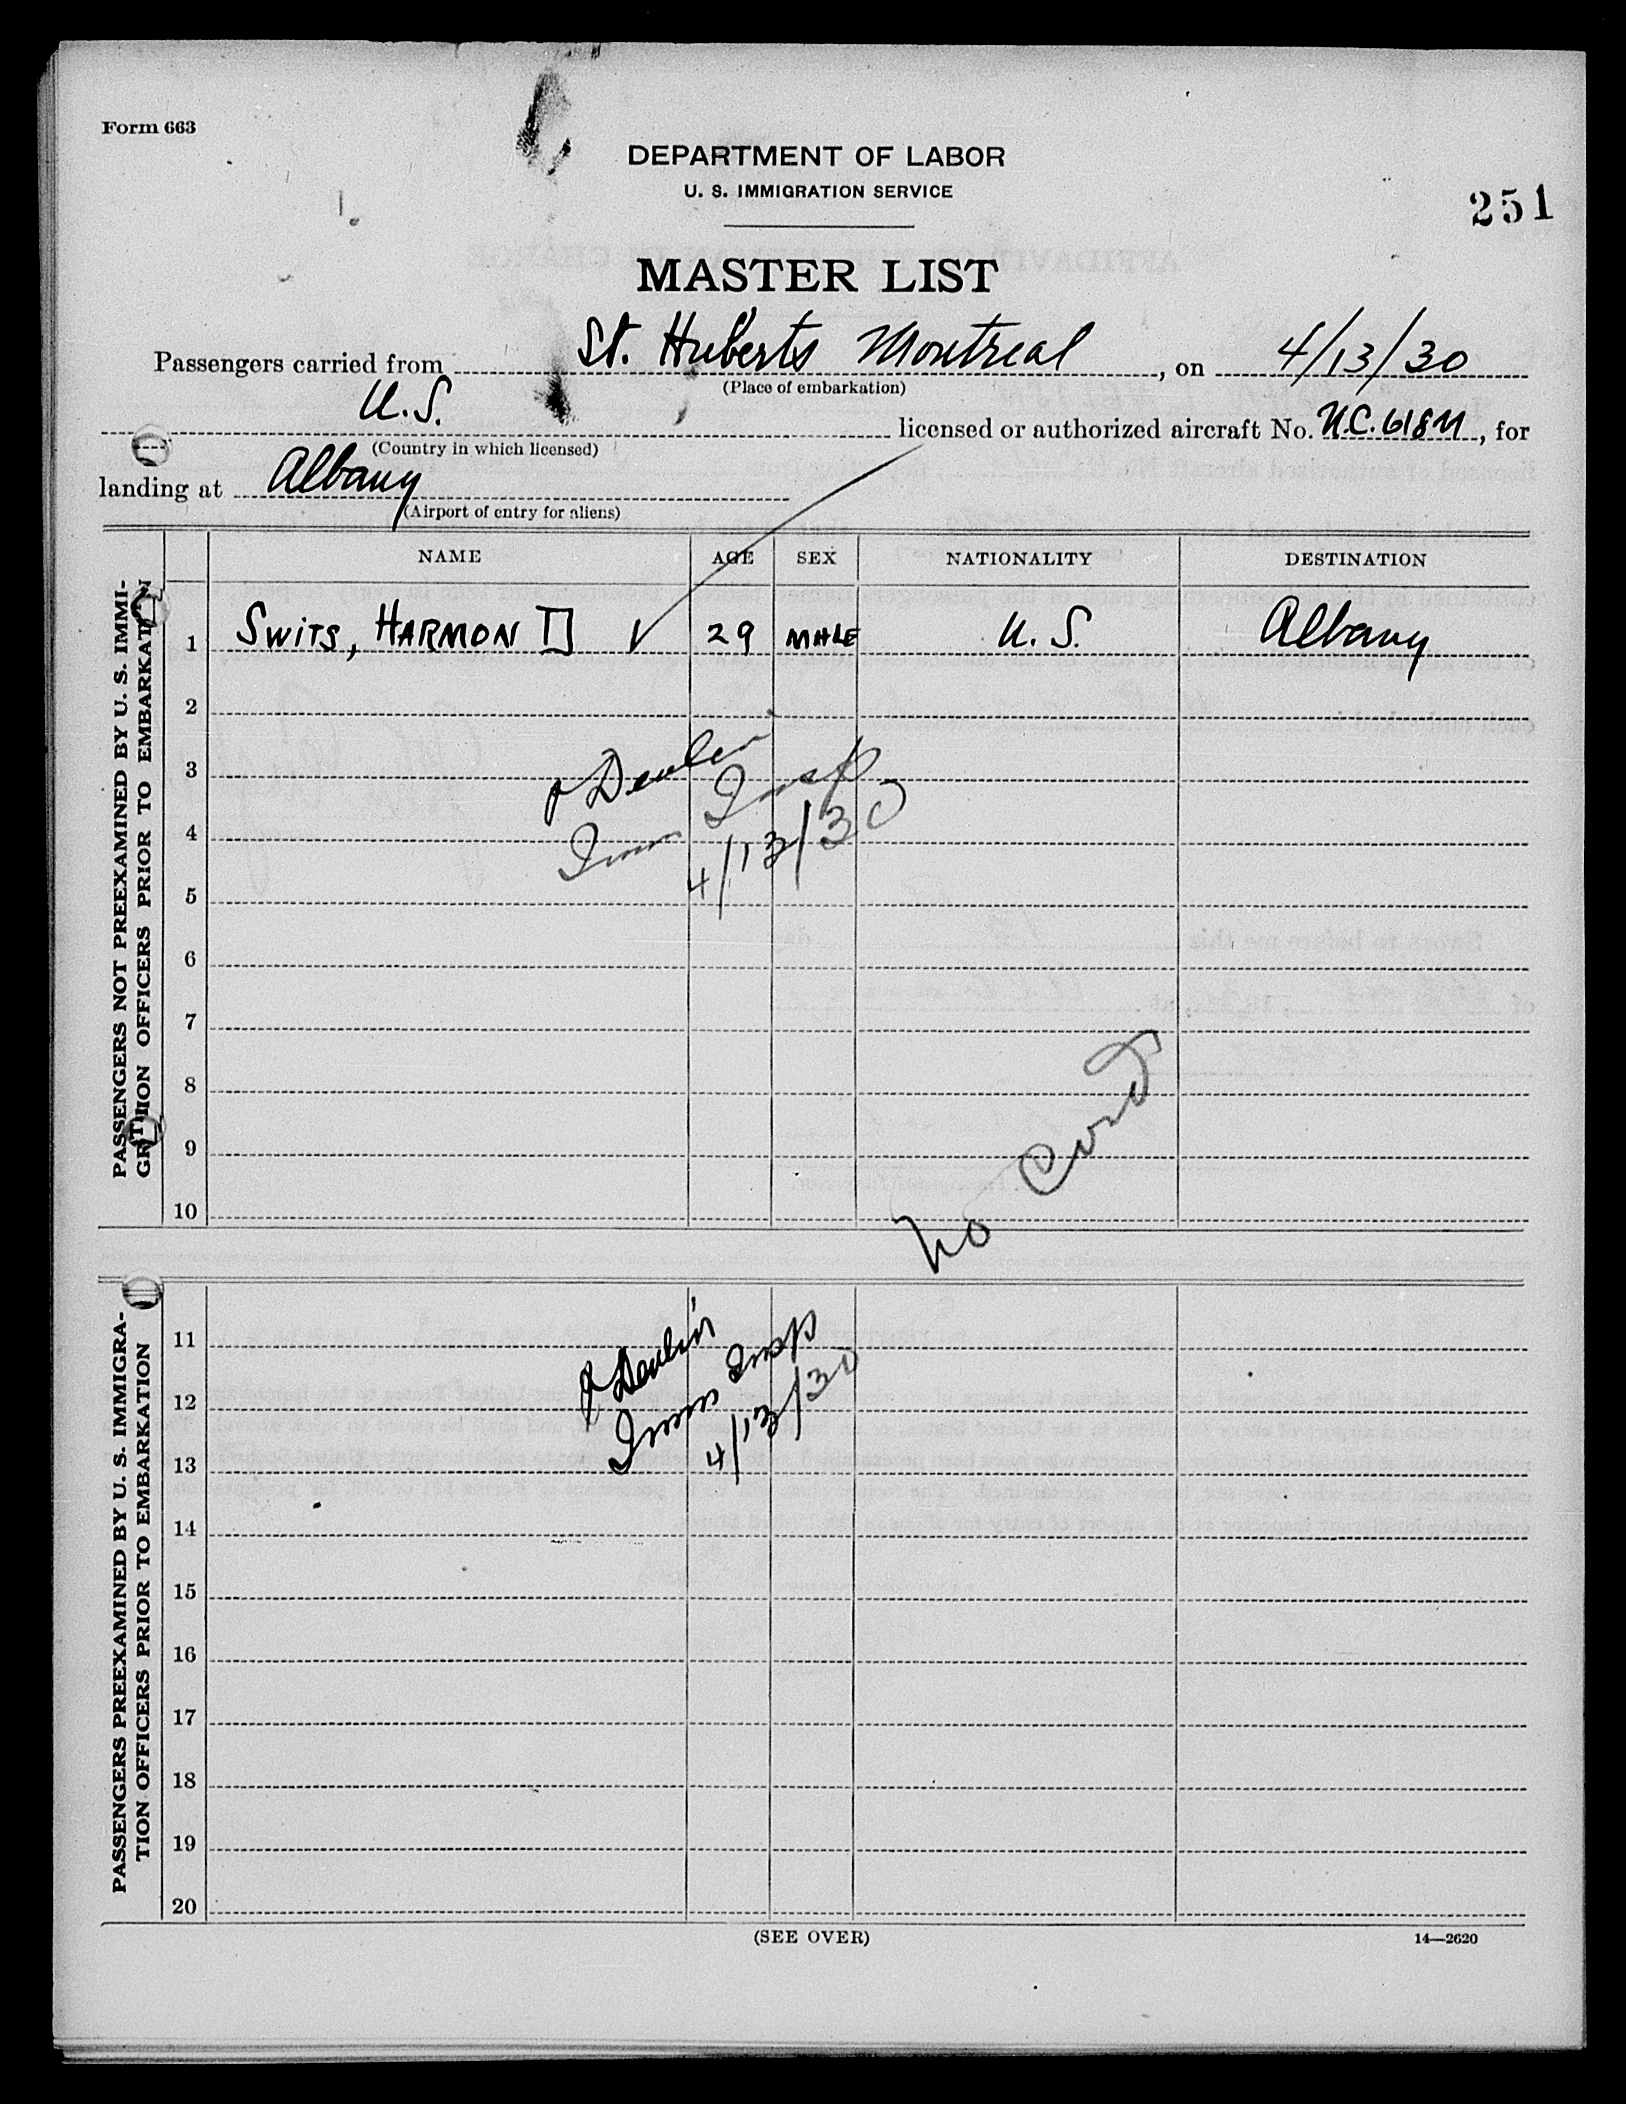 Form 663
DEPARTMENT OF LABOR
U. S. IMMIGRATION SERVICE
251
MASTER LIST
Passengers carried from St. Huberts Montreal, on 4/13/30
(Place of embarkation)
U.S. licensed or authorized aircraft No. N.C. 618M, for
(Country in which licensed)
landing at Albany
(Airport of entry for aliens)
NAME AGE SEX NATIONALITY DESTINATION
PASSENGERS NOT PREEXAMINED BY U. S. IMMI-
GRATION OFFICERS PRIOR TO EMBARKATION
1 SWITS, HARMON II ✓ 29 MALE U. S. Albany
2
3
Devlin
Imm Insp
4
4/13/30
5
6
7
8
9
10
no card
PASSENGERS PREEXAMINED BY U. S. IMMIGRA-
TION OFFICERS PRIOR TO EMBARKATION
11
Devlin
12
Imm Insp
13
4/13/30
14
15
16
17
18
19
20
(SEE OVER)
14—2620